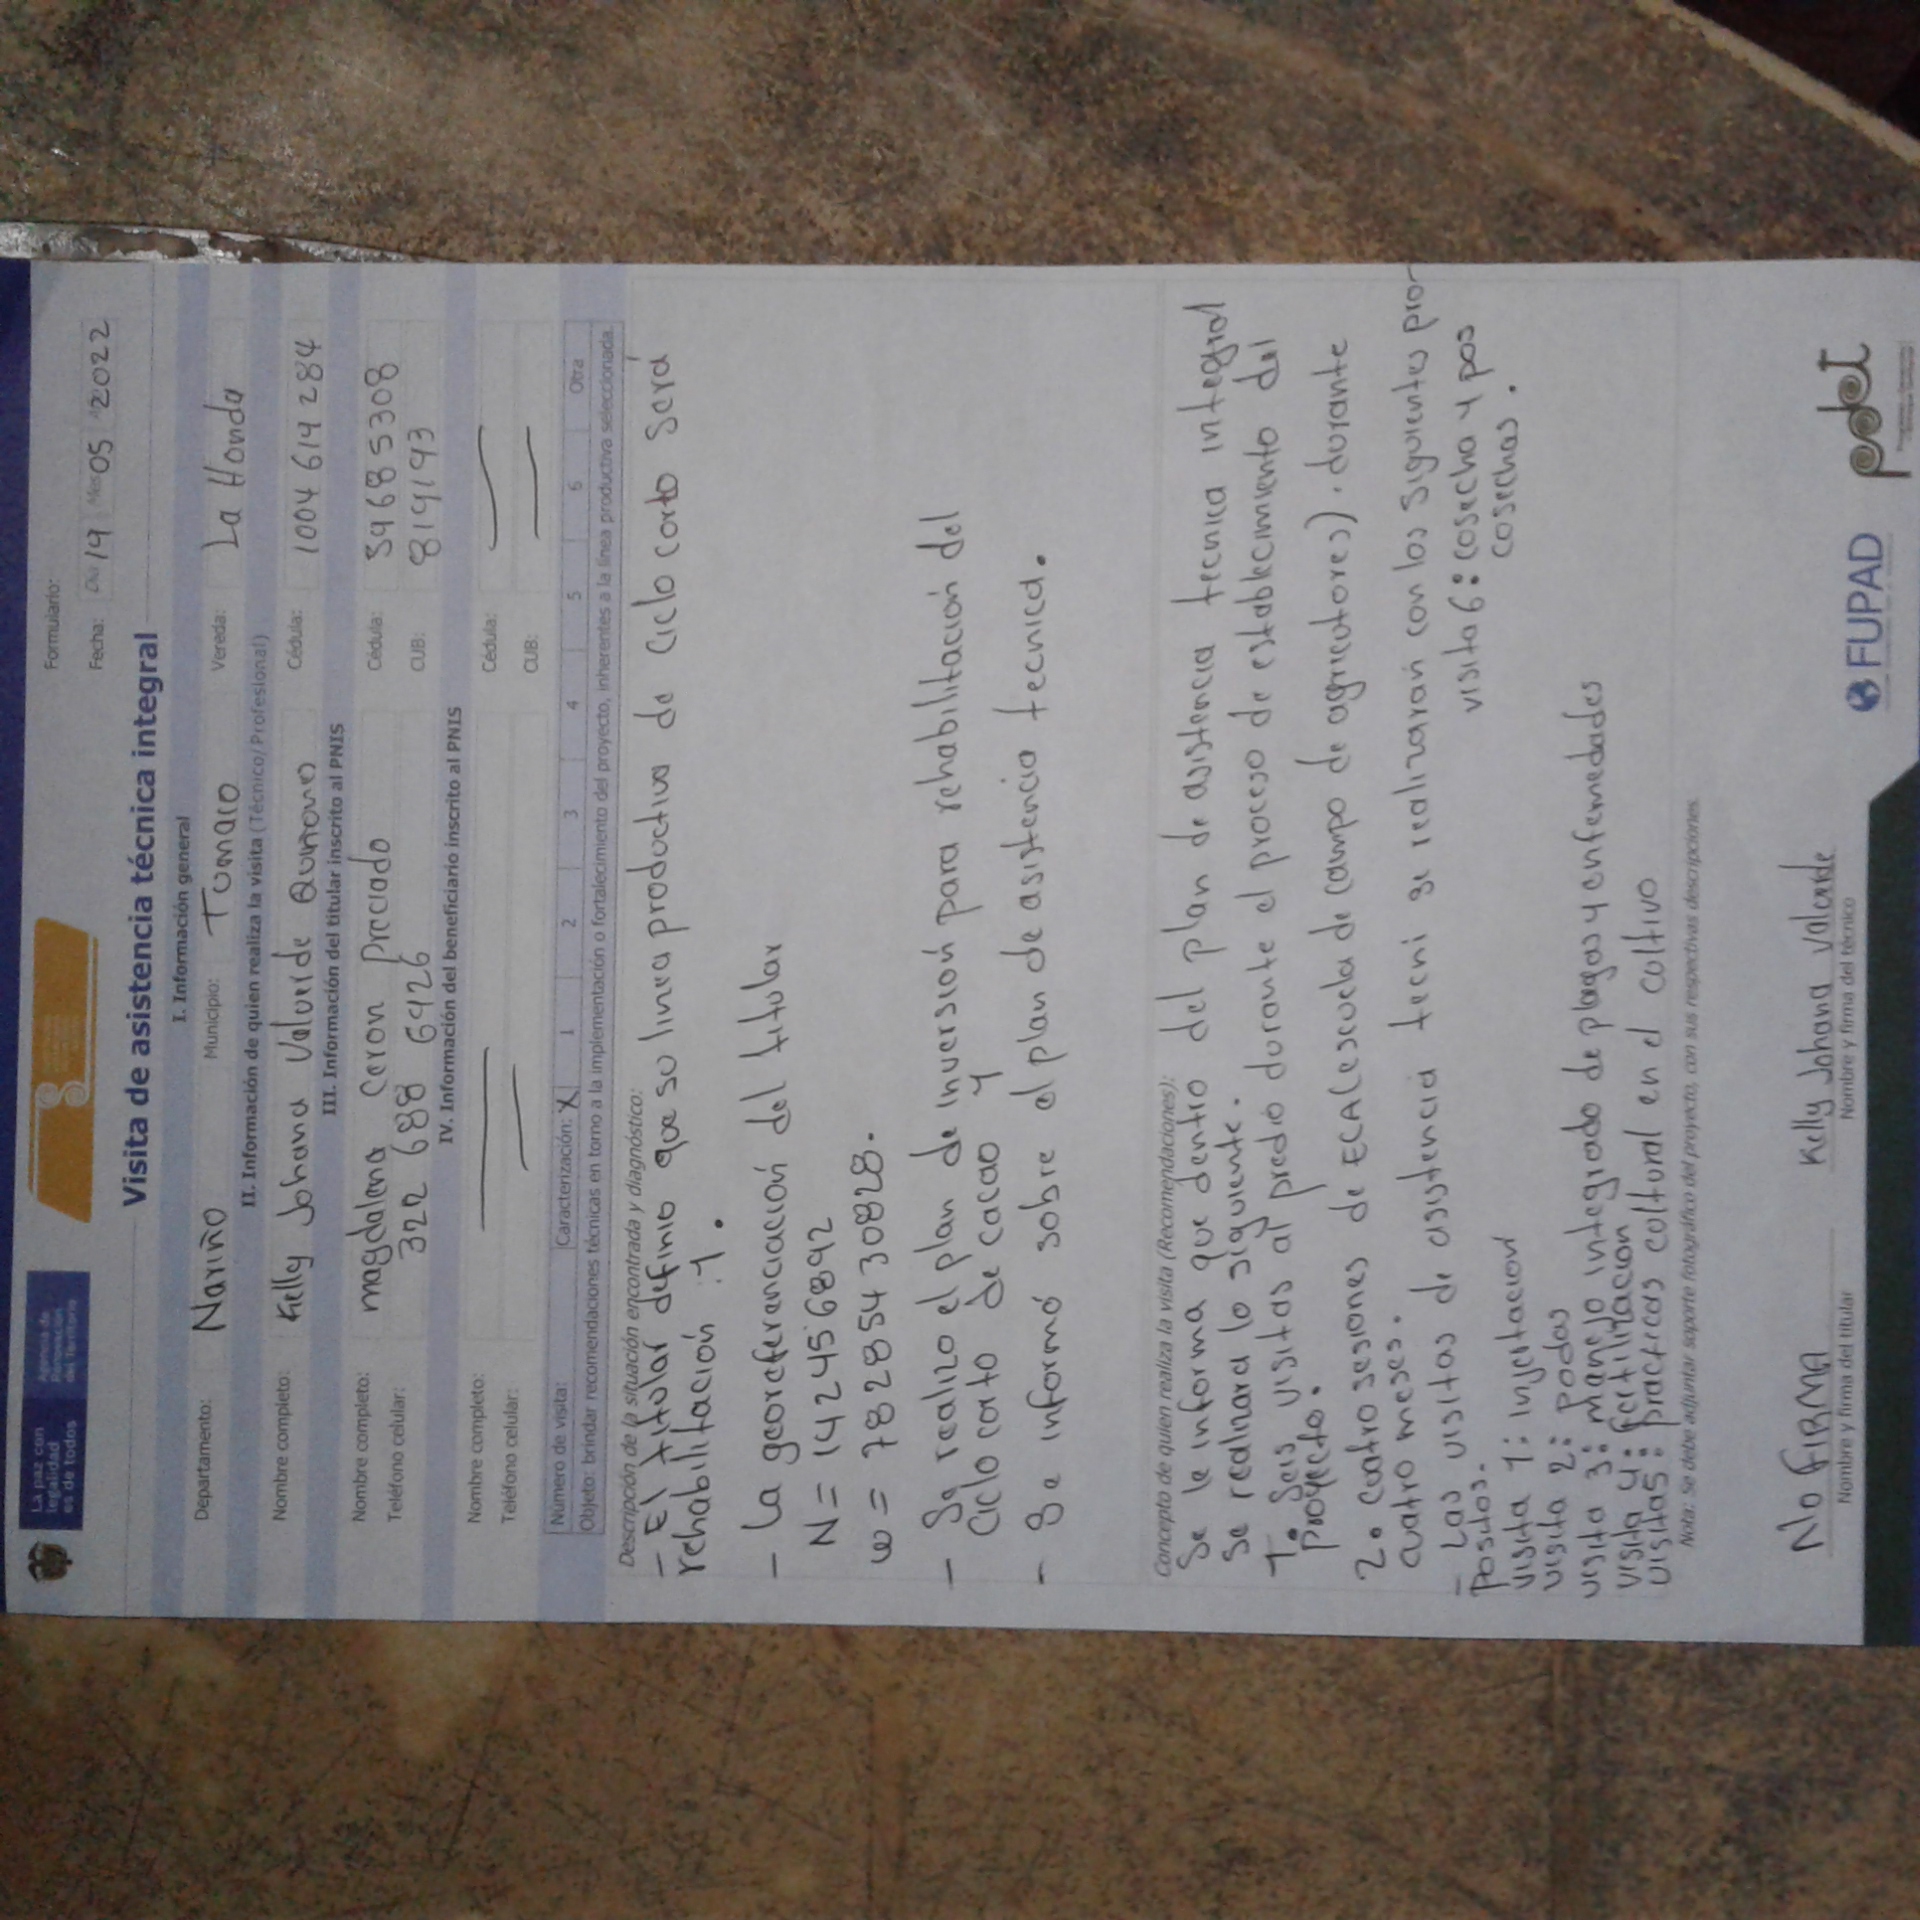 La paz con
legalidad
es de todos
Agencia de
Renovación
del Territorio
Formulario:
Fecha: Día 19 Mes 05 A 2022
Visita de asistencia técnica integral
I. Información general
Departamento: Nariño Municipio: Tumaco Vereda: La Honda
II. Información de quien realiza la visita (Técnico/Profesional)
Nombre completo: Kelly Johana Valverde Quiñones Cédula: 1004 614 284
III. Información del titular inscrito al PNIS
Nombre completo: magdalena Ceron Preciado Cédula: 59685308
Teléfono celular: 322 688 6426 CUB: 819193
IV. Información del beneficiario inscrito al PNIS
Nombre completo: Cédula:
Teléfono celular: CUB:
Número de visita: Caracterización: X 1 2 3 4 5 6 Otra
Objeto: brindar recomendaciones técnicas en torno a la implementación o fortalecimiento del proyecto, inherentes a la línea productiva seleccionada.
Descripción de la situación encontrada y diagnóstico:
- El titular definio que su linea productiva de Ciclo corto Será
rehabilitación :1.
- La georeferenciación del titular
N= 142456892
w= 7828543 0828.
- Se realizo el plan de inversión para rehabilitación del
Ciclo corto de cacao y
- Se informó sobre el plan de asistencia tecnica.
Concepto de quien realiza la visita (Recomendaciones):
Se le informa que dentro del plan de asistencia tecnica integral
Se realizara lo siguiente.
1. Seis visitas al predio durante el proceso de establecimiento del
proyecto.
2. cuatro sesiones de ECA(escuela de campo de agricutores). durante
cuatro meses.
- Las visitas de asistencia tecni se realizaran con los siguientes pro-
positos.
visita 1: injertación
visita 2: podas
visita 3: manejo integrado de plagas y enfemedades
visita 4: fertilización
visita5: practicas cultural en el cultivo
visita 6: cosecha y pos
cosechas.
Nota: se debe adjuntar soporte fotográfico del proyecto, con sus respectivas descripciones.
No FIRMA
Nombre y firma del titular
Kelly Johana Valverde
Nombre y firma del técnico
FUPAD
pdet